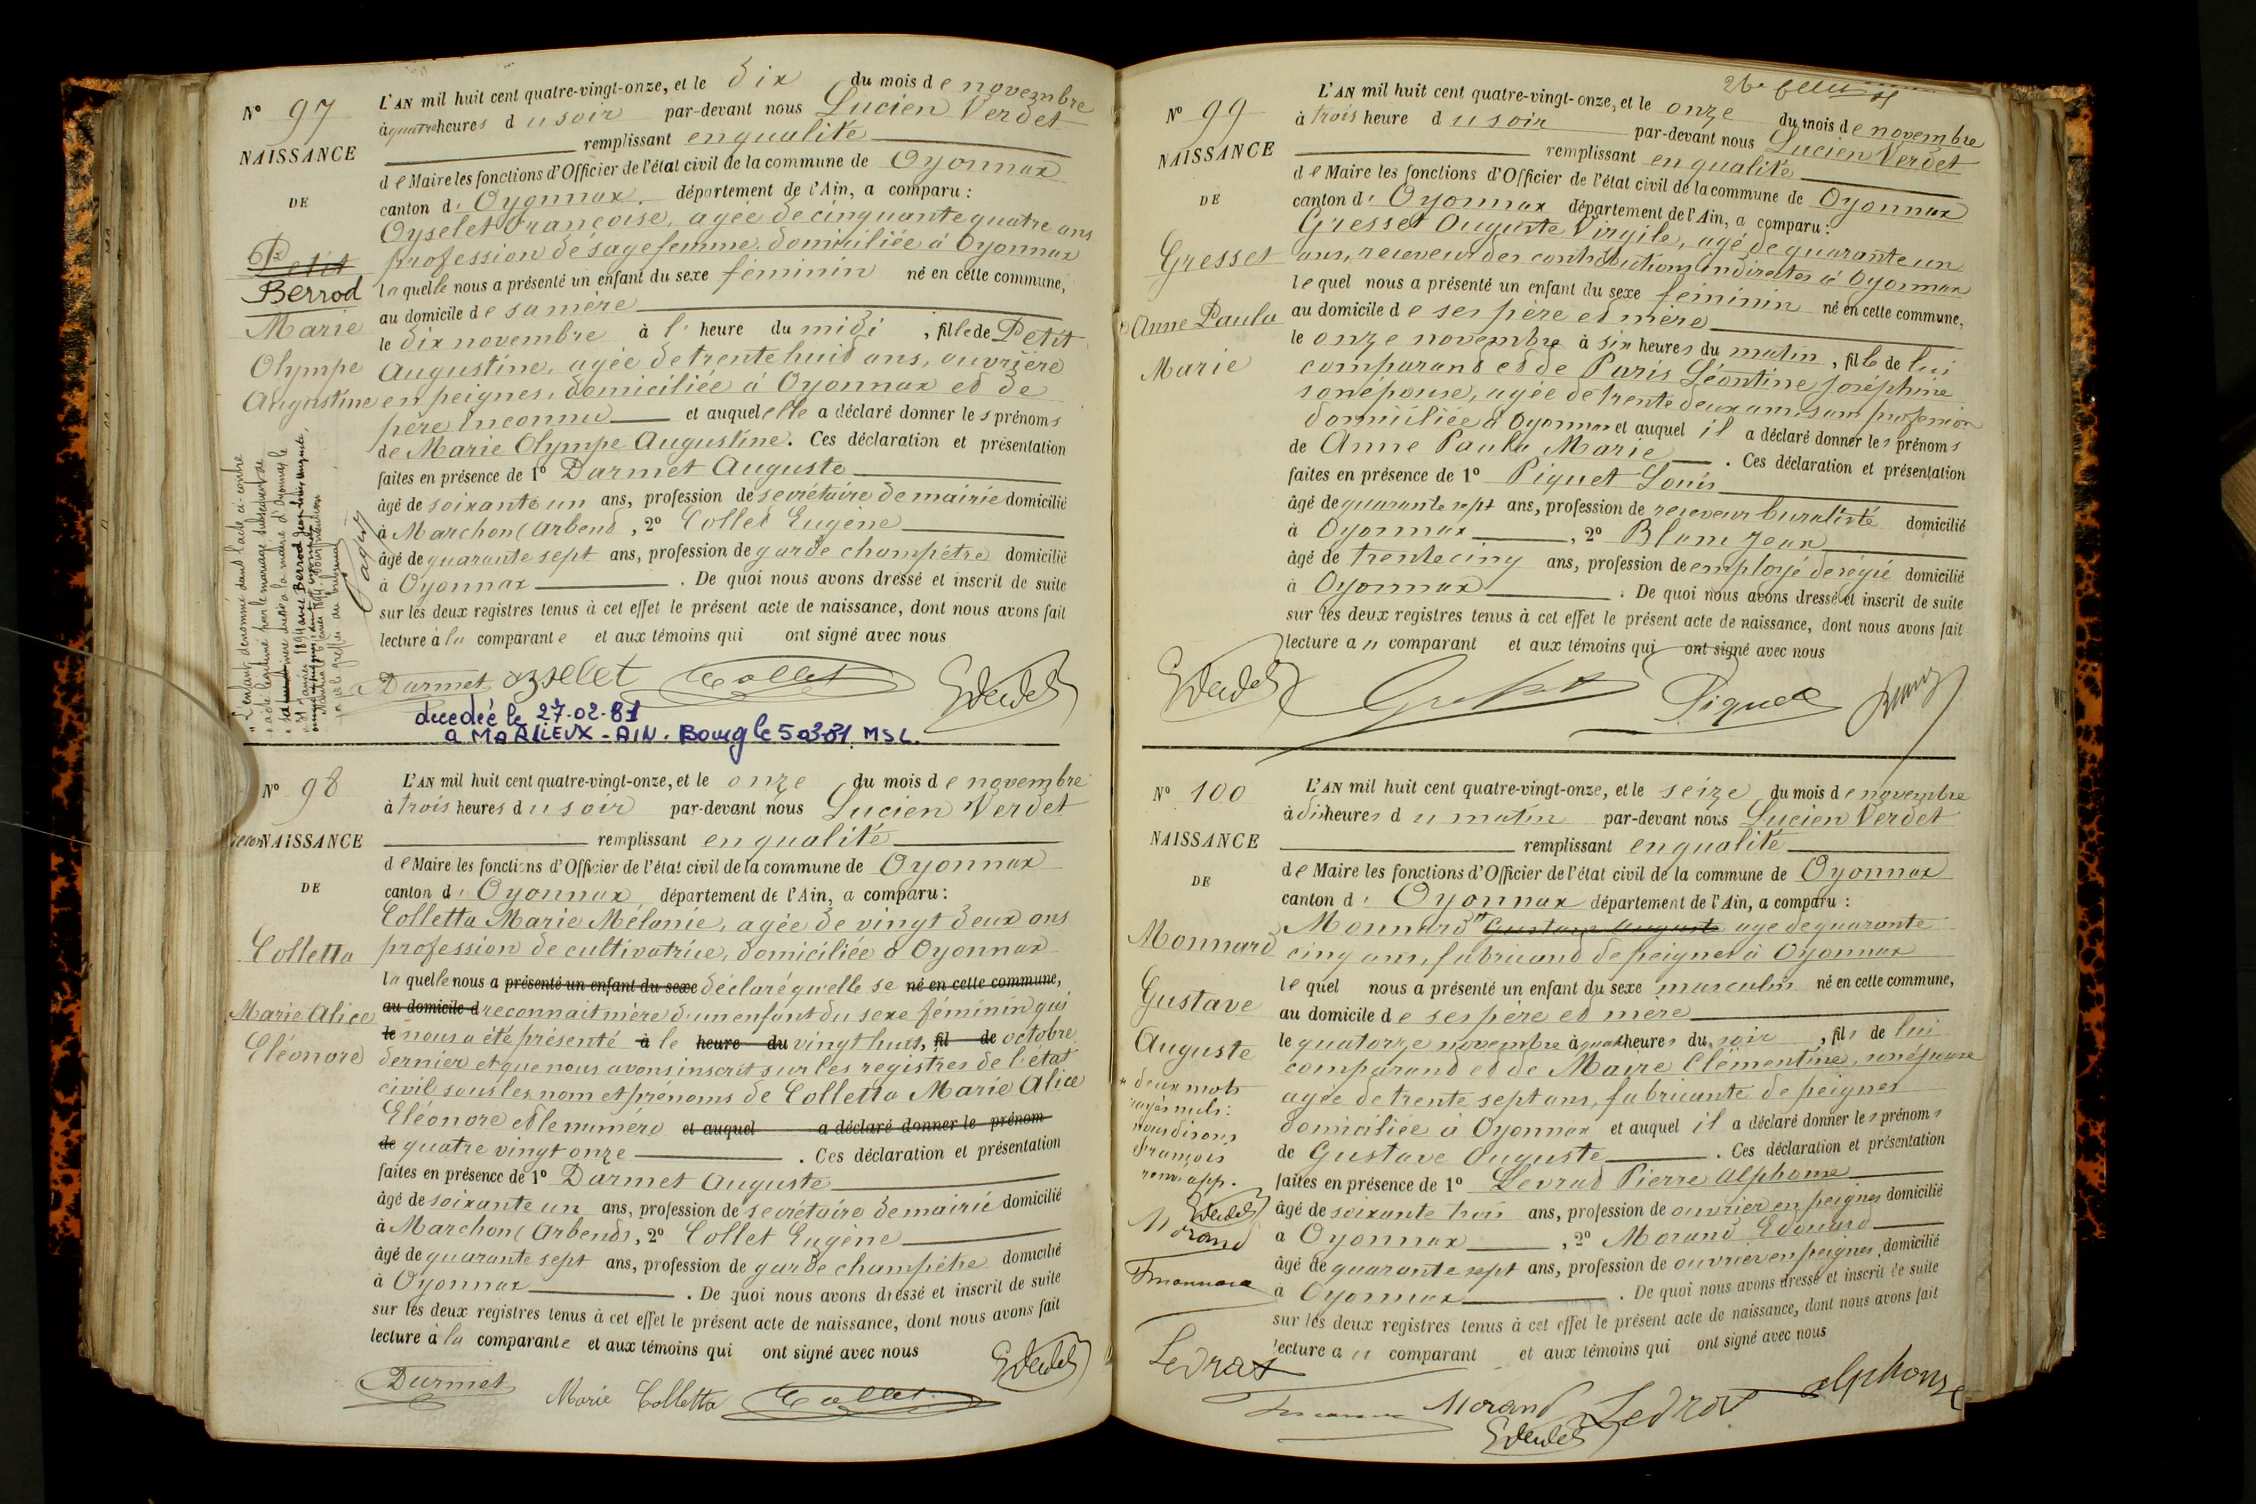 N° 97
NAISSANCE
DE
Petit
Berrod
Marie
Olympe
Augustine
L'AN mil huit cent quatre-vingt-onze, et le dix du mois de novembre
à quatre heures du soir par-devant nous Lucien Verdet
remplissant en qualité
de Maire les fonctions d'Officier de l'état civil de la commune de Oyonnax
canton d' Oyonnax, département de l'Ain, a comparu :
Oyselet Françoise, agée de cinquante quatre ans
profession de sage femme, domiciliée à Oyonnax
laquelle nous a présenté un enfant du sexe féminin né en cette commune,
au domicile de sa mère
le dix novembre à l' heure du midi, fille de Petit
Augustine, agée de trente huit ans, ouvrière
en peignes, domiciliée à Oyonnax et de
père inconnu et auquel elle a déclaré donner les prénoms
de Marie Olympe Augustine. Ces déclaration et présentation
faites en présence de 1° Darmet Auguste
âgé de soixante un ans, profession de secrétaire de mairie domicilié
à Marchon (Arbent, 2° Collet Eugène
âgé de quarante sept ans, profession de garde champêtre domicilié
à Oyonnax. De quoi nous avons dressé et inscrit de suite
sur les deux registres tenus à cet effet le présent acte de naissance, dont nous avons fait
lecture à la comparante et aux témoins qui ont signé avec nous
Darmet oyselet Collet
L'enfant dénommé dans l'acte ci-contre
a été légitimé par le mariage subséquent de
sa mère
1894 avec Berrod Jean
decedée le 27-02-81
a MARLIEUX - AIN. Bourg le 5 03 81. MSL.
N° 98
NAISSANCE
DE
Colletta
Marie Alice
Eléonore
L'AN mil huit cent quatre-vingt-onze, et le onze du mois de novembre
à trois heures du soir par-devant nous Lucien Verdet
remplissant en qualité
de Maire les fonctions d'Officier de l'état civil de la commune de Oyonnax
canton d' Oyonnax, département de l'Ain, a comparu :
Colletta Marie Mélanie, agée de vingt deux ans
profession de cultivatrice, domiciliée à Oyonnax
laquelle nous a présenté un enfant du sexe déclaré qu'elle se né en cette commune,
au domicile d reconnait mère d'un enfant du sexe féminin qui
le nous a été présenté à le heure du vingt huit, fil de octobre
dernier et que nous avons inscrit sur les registres de l'état
civil sous les nom et prénoms de Colletta Marie Alice
Eléonore et le numéro et auquel a déclaré donner le prénom
de quatre vingt onze. Ces déclaration et présentation
faites en présence de 1° Darmet Auguste
âgé de soixante un ans, profession de secrétaire de mairie domicilié
à Marchon (Arbent), 2° Collet Eugène
âgé de quarante sept ans, profession de garde champêtre domicilié
à Oyonnax. De quoi nous avons dressé et inscrit de suite
sur les deux registres tenus à cet effet le présent acte de naissance, dont nous avons fait
lecture à la comparante et aux témoins qui ont signé avec nous
Darmet Marie Colletta Collet
N° 99
NAISSANCE
DE
Gresset
Anne Paula
Marie
L'AN mil huit cent quatre-vingt-onze, et le onze du mois de novembre
à trois heure du soir par-devant nous Lucien Verdet
remplissant en qualité
de Maire les fonctions d'Officier de l'état civil de la commune de Oyonnax
canton d' Oyonnax département de l'Ain, a comparu :
Gresset Auguste Virgile, agé de quarante un
ans, receveur des contributions indirectes à Oyonnax
lequel nous a présenté un enfant du sexe féminin né en cette commune,
au domicile de ses père et mère
le onze novembre à six heures du matin, fille de lui
comparant et de Paris Léontine Joséphine
son épouse, agée de trente deux ans, sans profession
domiciliée à Oyonnax et auquel il a déclaré donner les prénoms
de Anne Paula Marie. Ces déclaration et présentation
faites en présence de 1° Piquet Louis
âgé de quarante sept ans, profession de receveur buraliste domicilié
à Oyonnax, 2° Blanc Jean
âgé de trente cinq ans, profession de employé de régie domicilié
à Oyonnax. De quoi nous avons dressé et inscrit de suite
sur les deux registres tenus à cet effet le présent acte de naissance, dont nous avons fait
lecture au comparant et aux témoins qui ont signé avec nous
Piquet
N° 100
NAISSANCE
DE
Monnard
Gustave
Auguste
deux mots
rayés nuls :
nous disons
François
Morand
Ledrat
L'AN mil huit cent quatre-vingt-onze, et le seize du mois de novembre
à dix heures du matin par-devant nous Lucien Verdet
remplissant en qualité
de Maire les fonctions d'Officier de l'état civil de la commune de Oyonnax
canton d' Oyonnax département de l'Ain, a comparu :
Monnard Gustave Auguste agé de quarante
cinq ans, fabricant de peignes à Oyonnax
lequel nous a présenté un enfant du sexe masculin né en cette commune,
au domicile de ses père et mère
le quatorze novembre à quatre heures du soir, fils de lui
comparant et de Maire Clémentine, son épouse
agée de trente sept ans, fabricante de peignes
domiciliée à Oyonnax et auquel il a déclaré donner les prénoms
de Gustave Auguste. Ces déclaration et présentation
faites en présence de 1° Levrat Pierre Alphonse
âgé de soixante trois ans, profession de ouvrier en peignes domicilié
à Oyonnax, 2° Morand Edouard
âgé de quarante sept ans, profession de ouvrier en peignes domicilié
à Oyonnax. De quoi nous avons dressé et inscrit de suite
sur les deux registres tenus à cet effet le présent acte de naissance, dont nous avons fait
lecture au comparant et aux témoins qui ont signé avec nous
Morand Ledrat alphonse